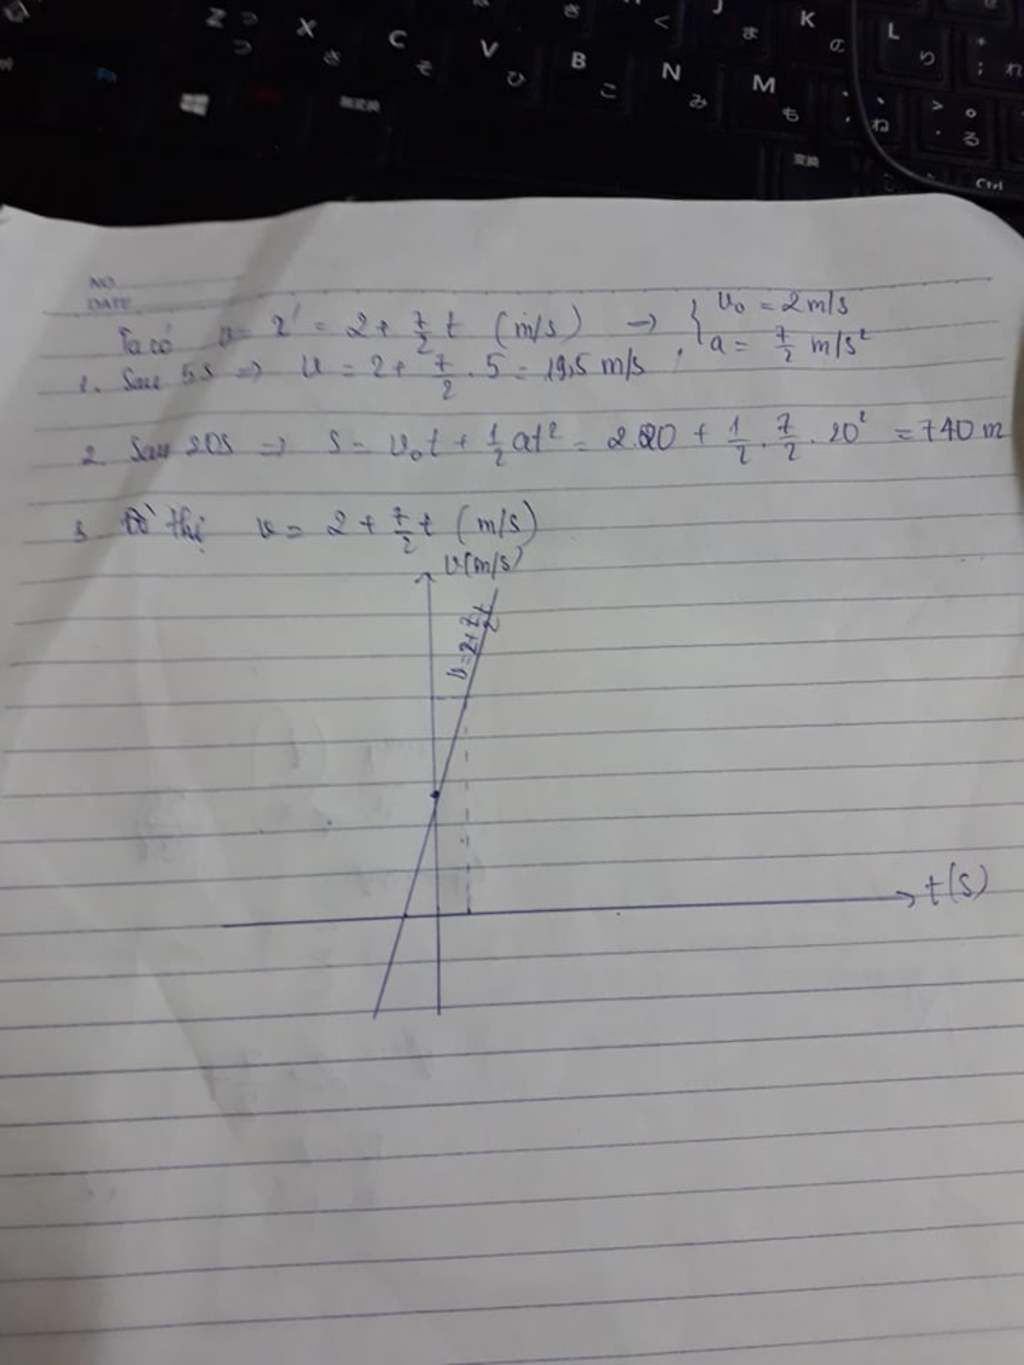 Z っ X さ C そ V ひ B こ N み M も K の L り ; れ
、 ね > 。 る
変換 Ctrl
無変換
NO
DATE
Ta có v = x' = 2 + 7/2 t (m/s) → { v₀ = 2 m/s
a = 7/2 m/s²
1. Sau 5s ⇒ v = 2 + 7/2 . 5 = 19,5 m/s
2. Sau 20s ⇒ s = v₀t + 1/2 at² = 2.20 + 1/2 . 7/2 . 20² = 740 m
3. Đồ thị v = 2 + 7/2 t (m/s)
v(m/s)
v = 2 + 7/2 t
t(s)